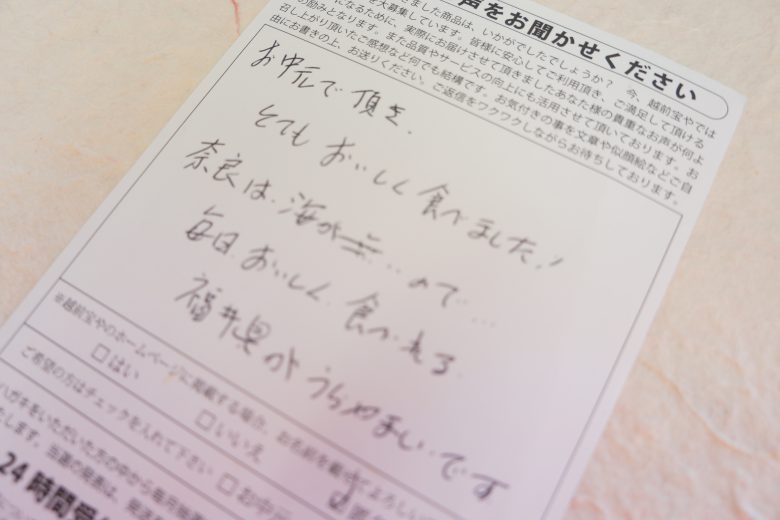 声をお聞かせください
ました商品は、いかがでしたでしょうか？　今、越前宝やでは
を大募集しています。皆様に安心してご利用頂き、ご満足して頂ける
になるために、実際にお届けさせて頂きましたあなた様の貴重なお声が何よ
の励みとなります。また品質やサービスの向上にも活用させて頂いております。お
召し上がり頂いたご感想など何でも結構です。お気付きの事を文章や似顔絵などご自
由にお書きの上、お送りください。ご返信をワクワクしながらお待ちしております。
お中元で頂き、
とても おいしく 食べました!
奈良は、海が ‥ ので…
毎日 おいしく 食べれる
福井県が うらやましいです
※越前宝やのホームページに掲載する場合、お名前を載せてよろしい
□はい　□いいえ
ご希望の方はチェックを入れて下さい　□お中元
ハガキをいただいた方の中から毎月抽選
たします。当選の発表は、発送
24時間受